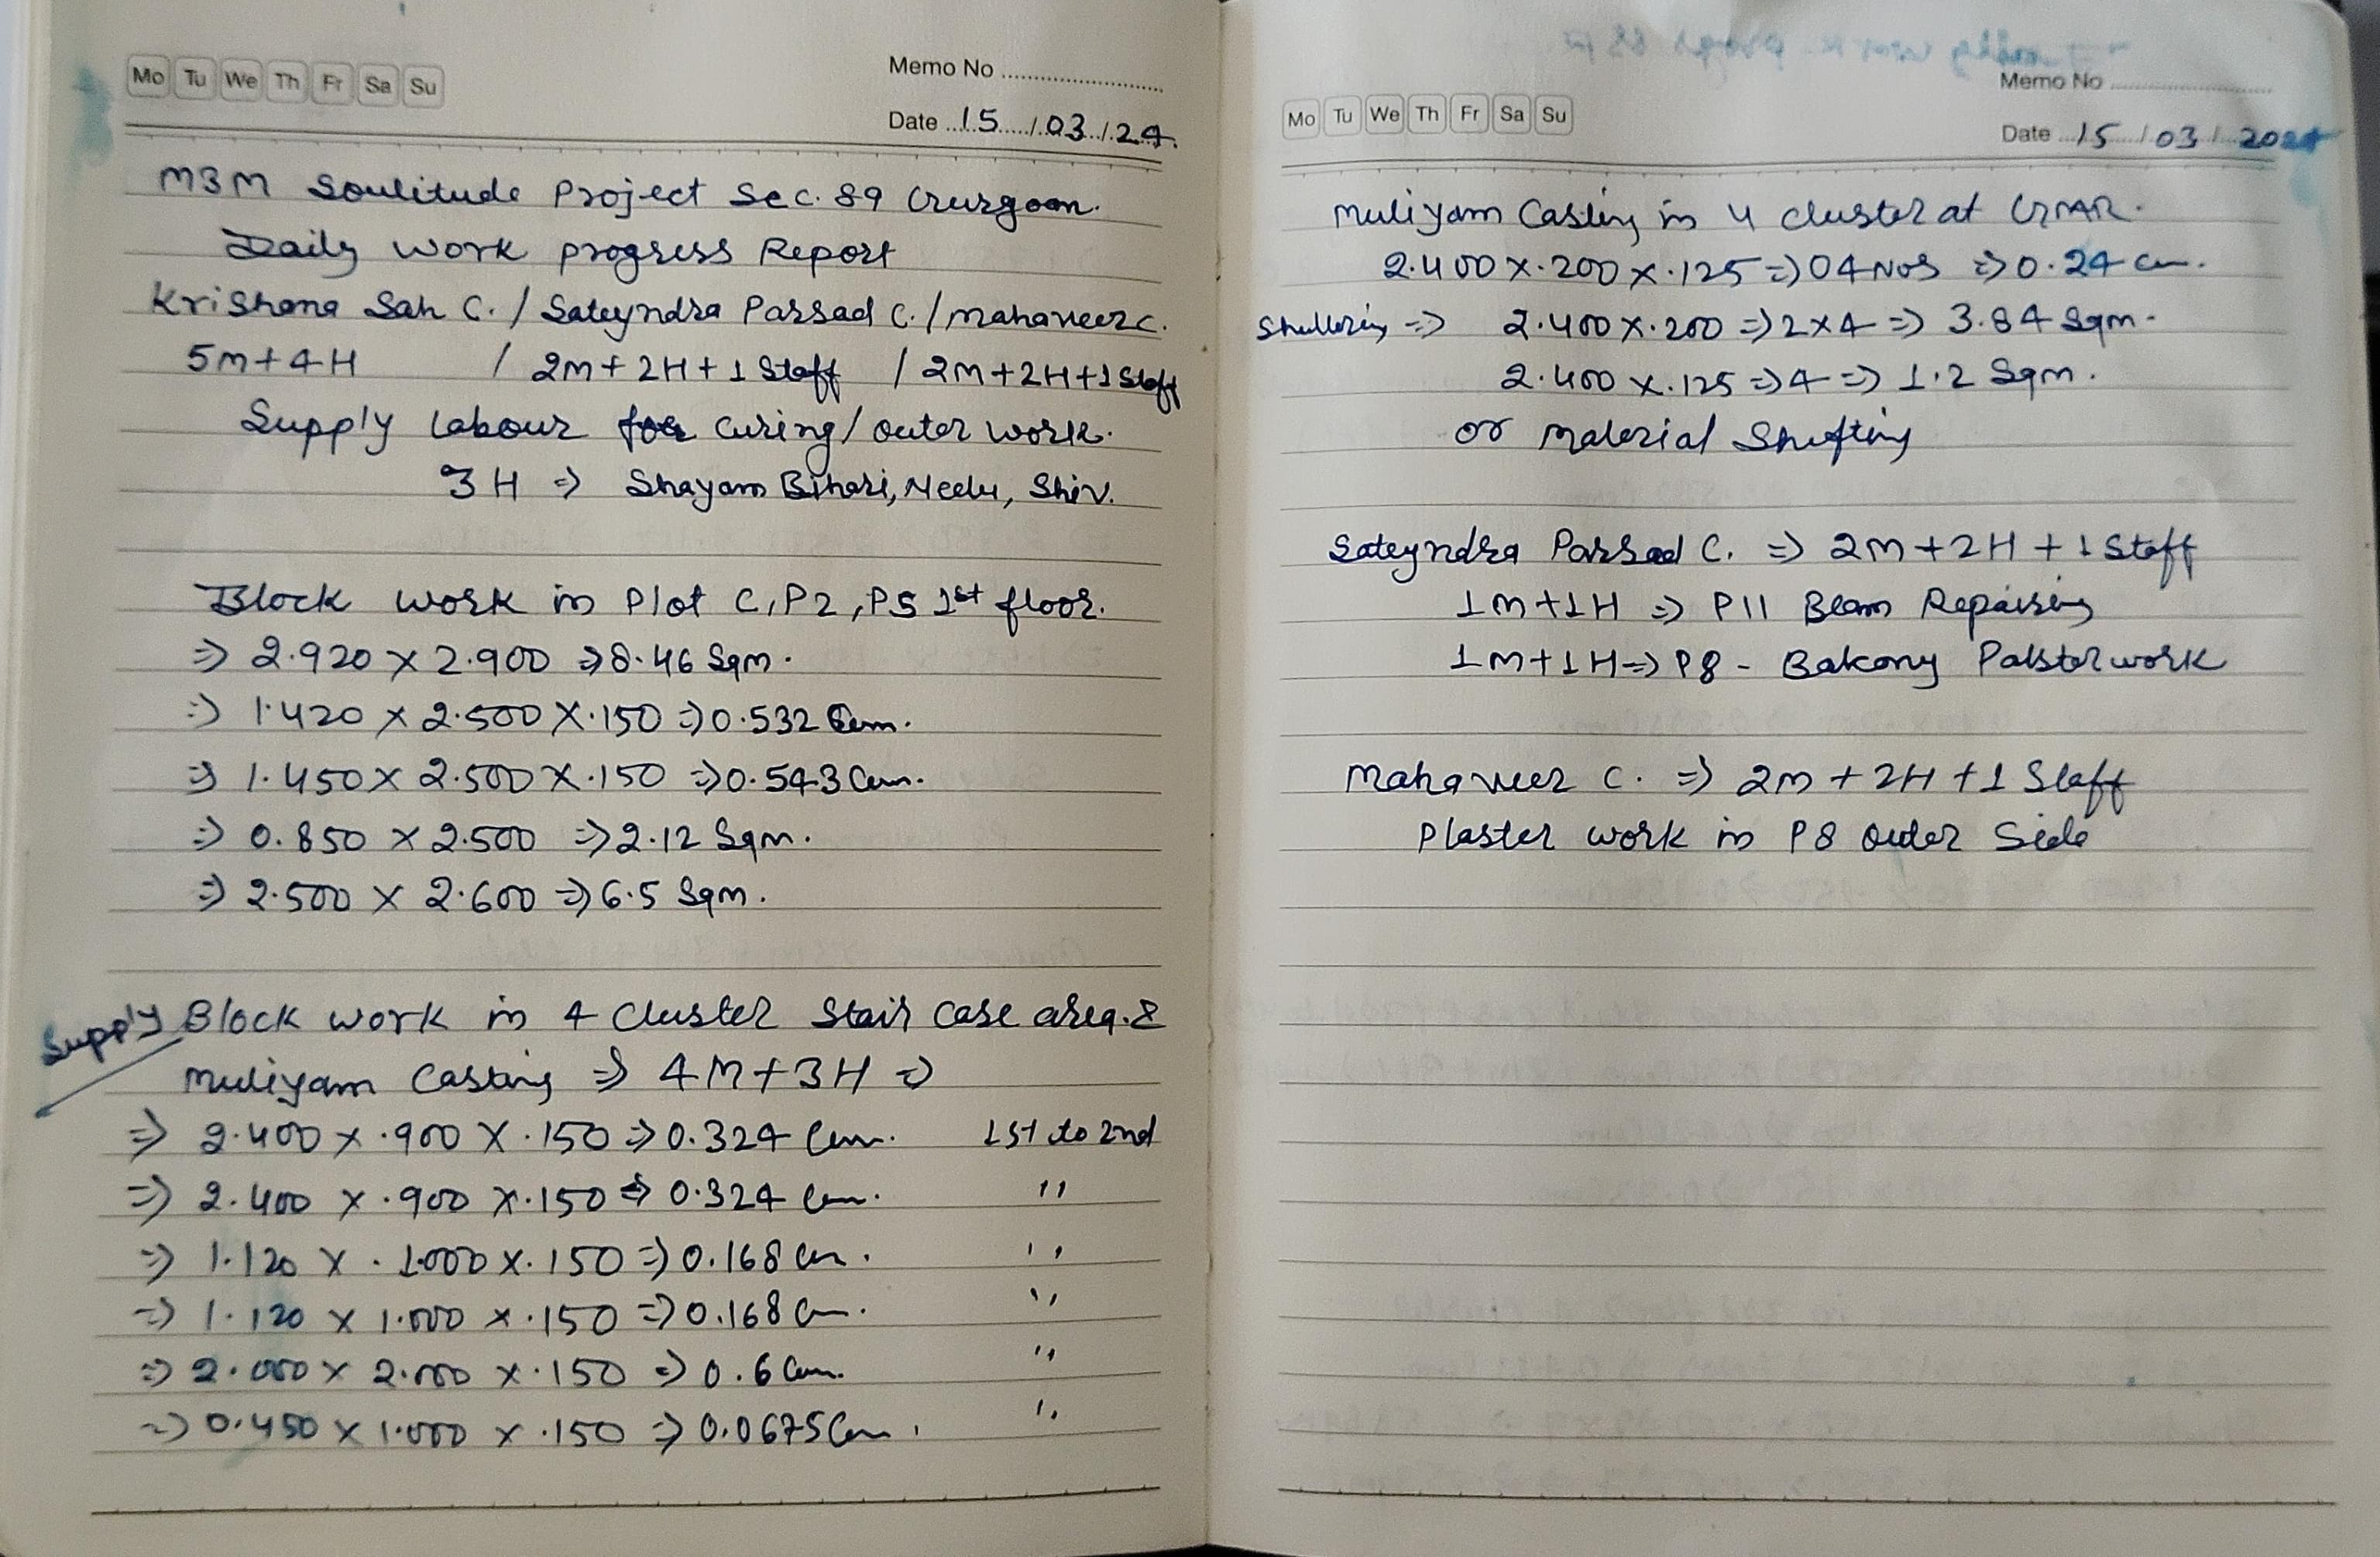 Mo Tu We Th Fr Sa Su
Memo No
Date 15/03/24.
M3M Soulitude Project Sec. 89 Gurgoan.
Daily Work progress Report
Krishana Sah C. / Sateyndra Parsad C. / Mahaveer C.
5M+4H / 2M+2H+1 Staff / 2M+2H+1 Staff
Supply Labour for Curing/outer work.
3H => Shayam Bihari, Neelu, Shiv.
Block work in Plot C, P2, P5 1st floor.
=> 2.920 x 2.900 => 8.46 Sqm.
=> 1.420 x 2.500 x .150 => 0.532 Cum.
=> 1.450 x 2.500 x .150 => 0.543 Cum.
=> 0.850 x 2.500 => 2.12 Sqm.
=> 2.500 x 2.600 => 6.5 Sqm.
Supply Block work in 4 Cluster Stair Case area. &
Muliyam Casting => 4M+3H =>
=> 2.400 x .900 x .150 => 0.324 Cum. 1st to 2nd
=> 2.400 x .900 x .150 => 0.324 Cum. "
=> 1.120 x . 1.000 x .150 => 0.168 Cum. "
=> 1.120 x 1.000 x .150 => 0.168 Cum. "
=> 2.000 x 2.000 x .150 => 0.6 Cum. "
=> 0.450 x 1.000 x .150 => 0.0675 Cum. "
Memo No
Mo Tu We Th Fr Sa Su
Date 15/03/2024
Muliyam Casting in 4 cluster at
2.400 x .200 x .125 => 04 Nos => 0.24 Cum.
Shuttering => 2.400 x .200 => 2x4 => 3.84 Sqm.
2.400 x .125 => 4 => 1.2 Sqm.
or Material Shifting
Sateyndra Parsad C. => 2M+2H+1 Staff
1M+1H => P11 Beam Repairing
1M+1H => P8 - Bakony Palster work
Mahaveer C. => 2M+2H+1 Staff
Plaster work in P8 outer Side